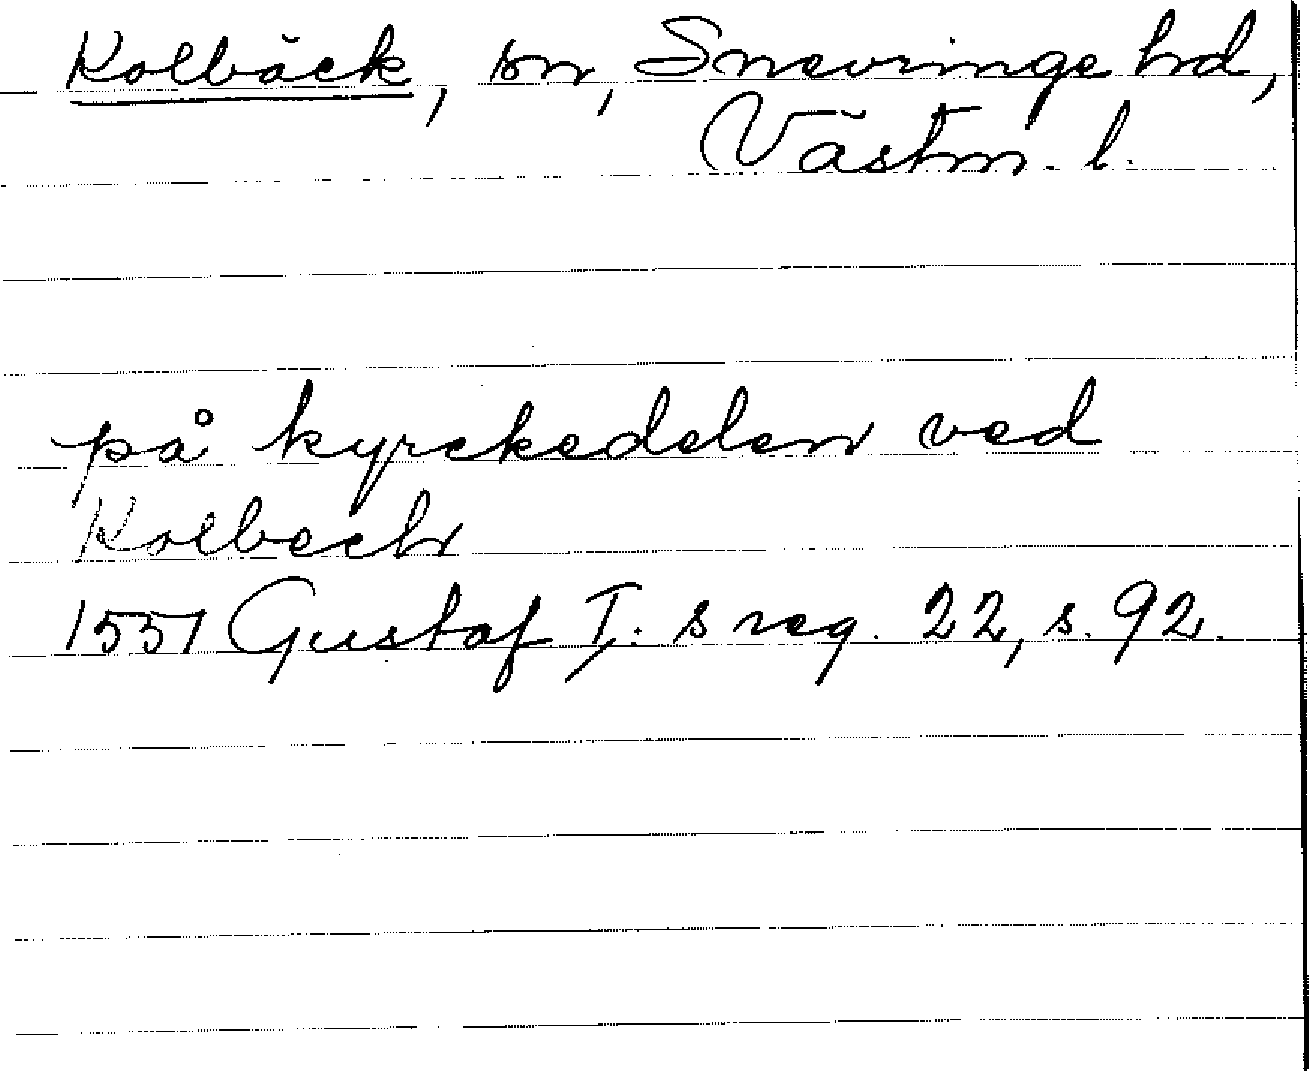 Kolbäck, sn, Snevringe hd,
Västm. l.
på kyrckedelen ved
Kolbech
1551 Gustaf I:s reg. 22, s. 92.